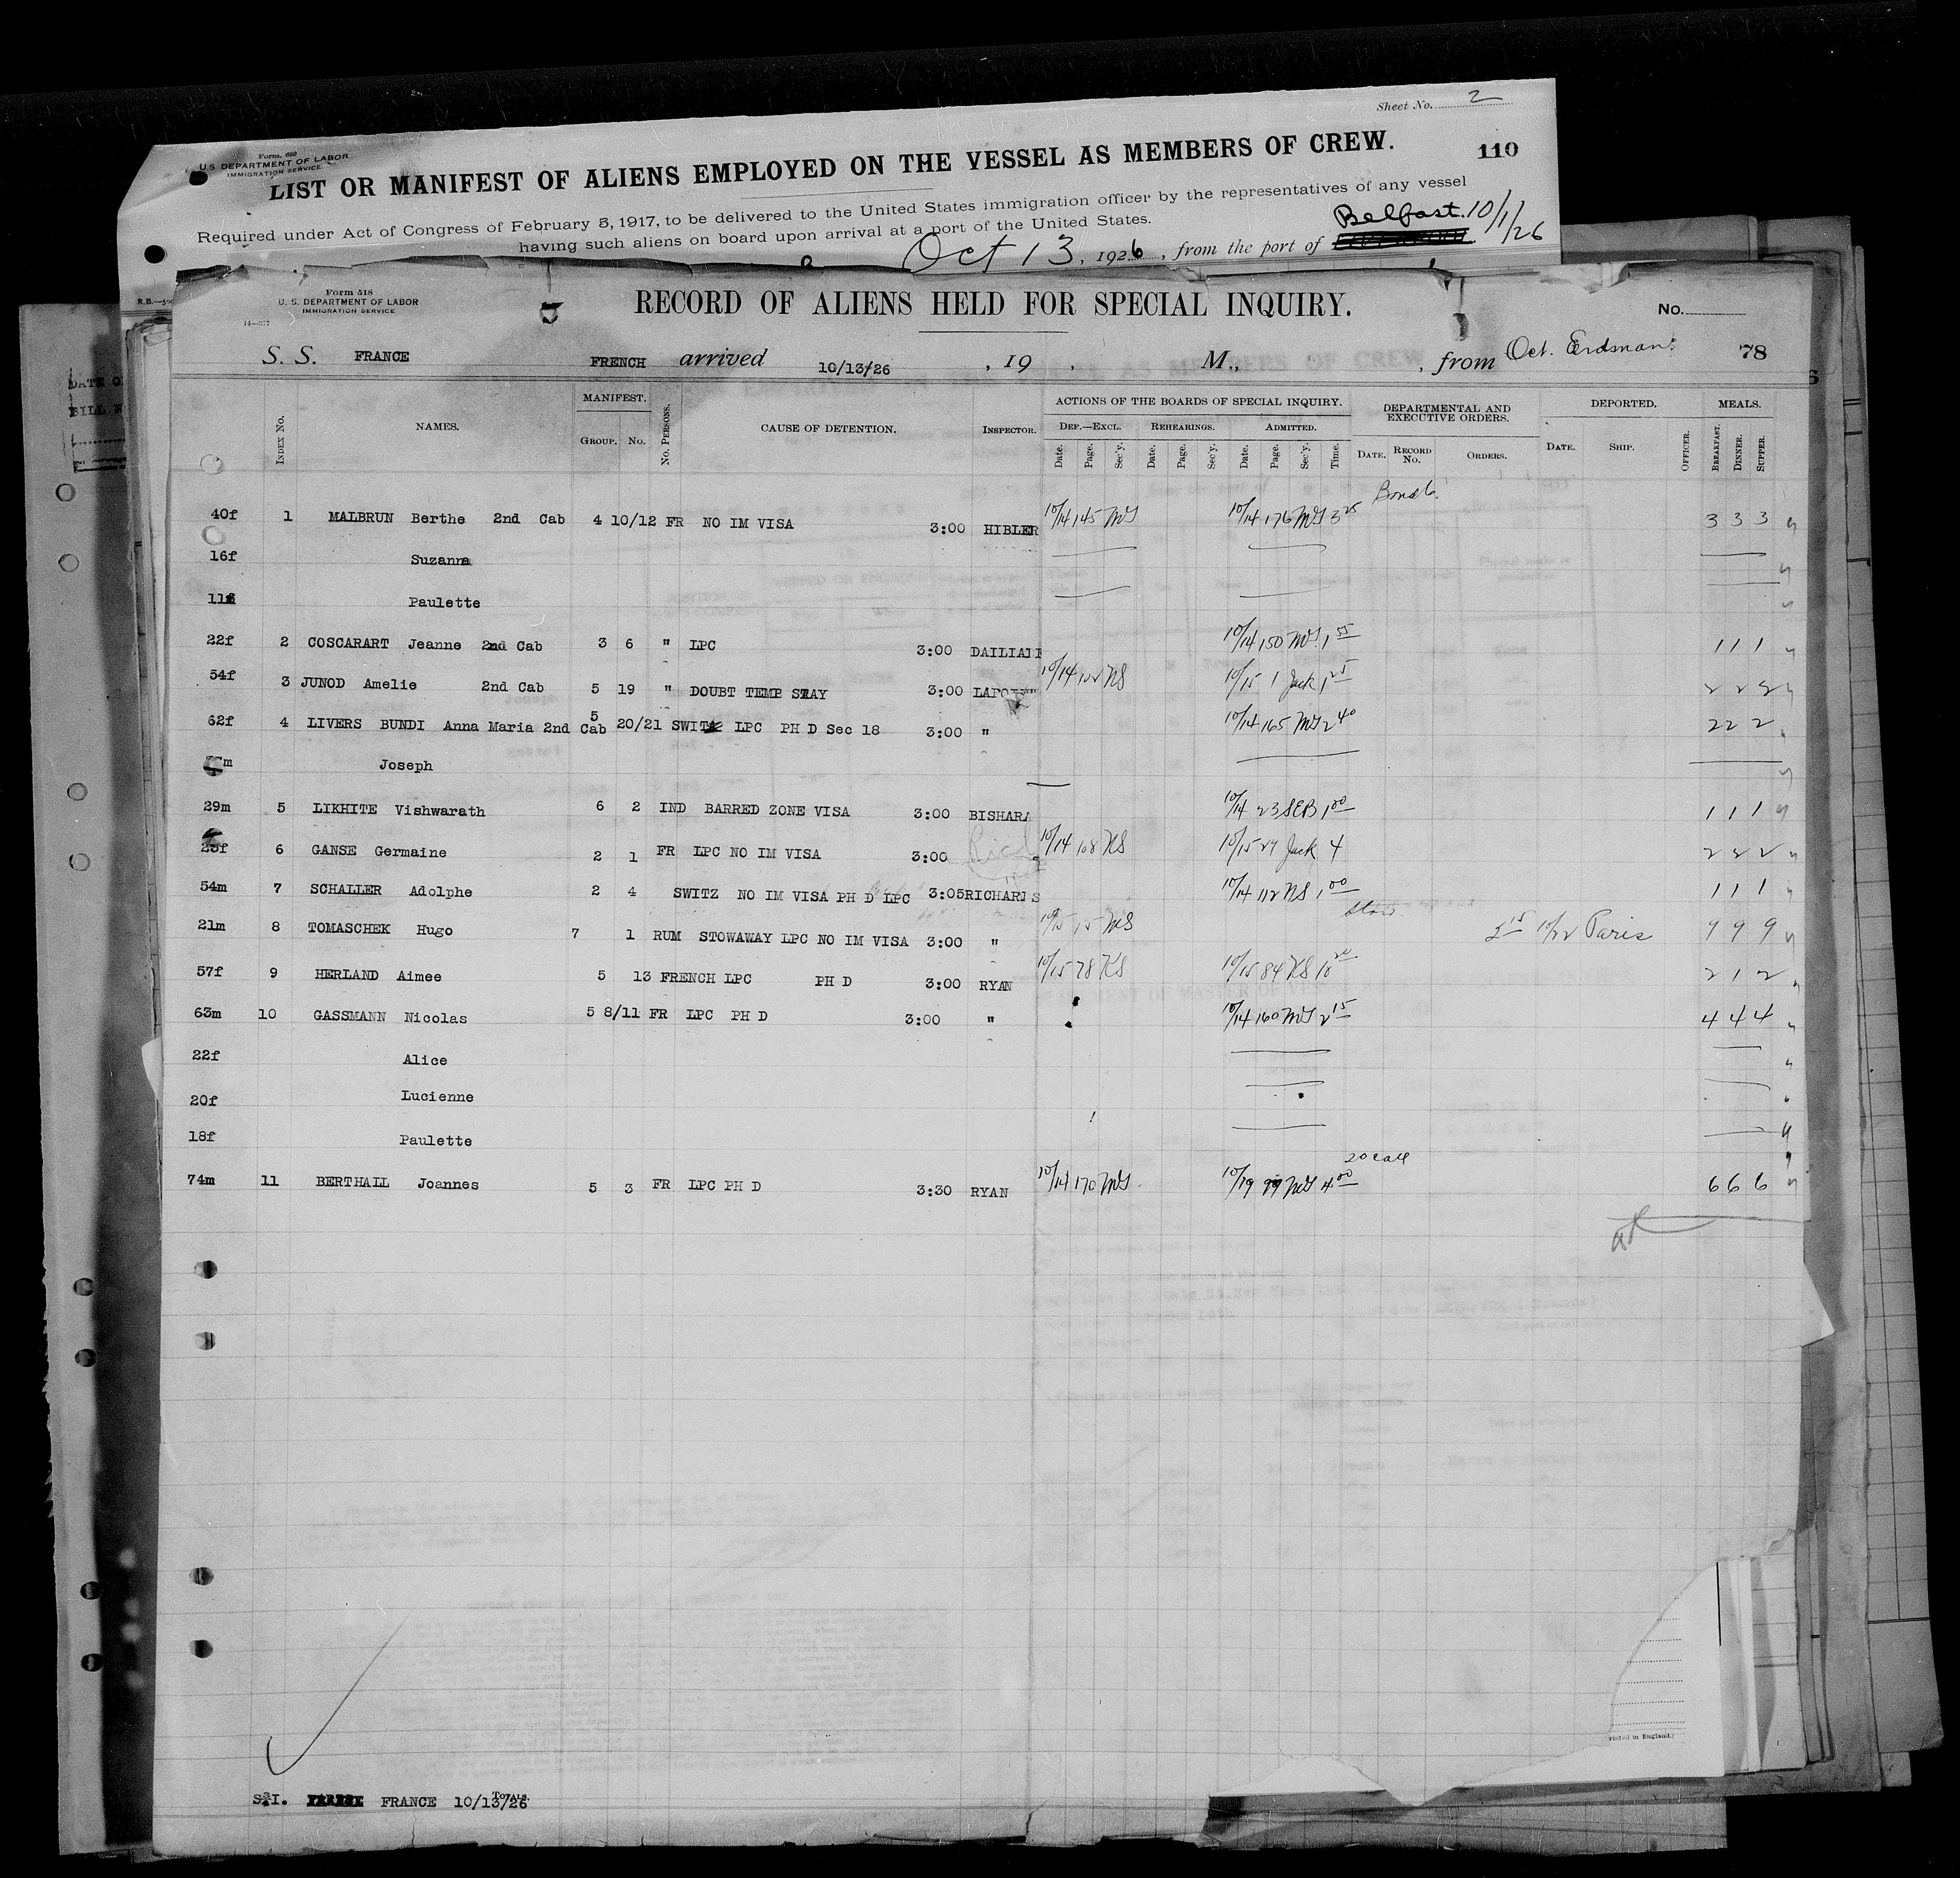 Sheet No. 2
Form 680
U.S. DEPARTMENT OF LABOR
IMMIGRATION SERVICE
110
LIST OR MANIFEST OF ALIENS EMPLOYED ON THE VESSEL AS MEMBERS OF CREW.
Required under Act of Congress of February 5, 1917, to be delivered to the United States immigration officer by the representatives of any vessel
having such aliens on board upon arrival at a port of the United States.
Oct 13, 1926, from the port of Belfast. 10/1/26
Form 518
U. S. DEPARTMENT OF LABOR
IMMIGRATION SERVICE
14—577
RECORD OF ALIENS HELD FOR SPECIAL INQUIRY.
No.
S. S. FRANCE FRENCH arrived 10/13/26 , 19 , M., , from Oct. 78
INDEX No. NAMES. MANIFEST. GROUP. No. No. PERSONS. CAUSE OF DETENTION. INSPECTOR. ACTIONS OF THE BOARDS OF SPECIAL INQUIRY. DEF.—EXCL. REHEARINGS. ADMITTED. DEPARTMENTAL AND EXECUTIVE ORDERS. DEPORTED. MEALS.
Date. Page. Sec'y. Date. Page. Sec'y. Date. Page. Sec'y. Time. DATE. RECORD No. ORDERS. DATE. SHIP. OFFICER. BREAKFAST. DINNER. SUPPER.
40f 1 MALBRUN Berthe 2nd Cab 4 10/12 FR NO IM VISA 3:00 HIBLER 10/14 145 MG 10/14 176 MG 3 25 3 3 3
16f Suzanna
11f Paulette
22f 2 COSCARART Jeanne 2nd Cab 3 6 " LPC 3:00 10/14 150 MG 1 55 1 1 1
54f 3 JUNOD Amelie 2nd Cab 5 19 " DOUBT TEMP STAY 3:00 10/14 102 NS 10/15 1 Jack 1 25 2 2 2
62f 4 LIVERS BUNDI Anna Maria 2nd Cab 5 20/21 SWITZ LPC PH D Sec 18 3:00 " 10/14 165 MG 2 40 2 2 2
m Joseph
29m 5 LIKHITE Vishwarath 6 2 IND BARRED ZONE VISA 3:00 BISHARA 10/14 23 SEB 1 00 1 1 1
6 GANSE Germaine 2 1 FR LPC NO IM VISA 3:00 10/14 108 KS 10/15 27 Jack 4 2 2 2
54m 7 SCHALLER Adolphe 2 4 SWITZ NO IM VISA PH D LPC 3:05 RICHARDS 10/14 112 NS 1 00 1 1 1
21m 8 TOMASCHEK Hugo 7 1 RUM STOWAWAY LPC NO IM VISA 3:00 " 10/15 15 MS 10/22 Paris 9 9 9
57f 9 HERLAND Aimee 5 13 FRENCH LPC PH D 3:00 RYAN 10/15 78 KS 10/15 84 KS 10 20 2 1 2
63m 10 GASSMANN Nicolas 5 8/11 FR LPC PH D 3:00 " 10/14 160 MG 2 15 4 4 4
22f Alice
20f Lucienne
18f Paulette
74m 11 BERTHAIL Joannes 5 3 FR LPC PH D 3:30 RYAN 10/14 170 MG 10/19 99 MG 4 00 6 6 6
S.I. FRANCE 10/13/26
TOTALS
Printed in England.